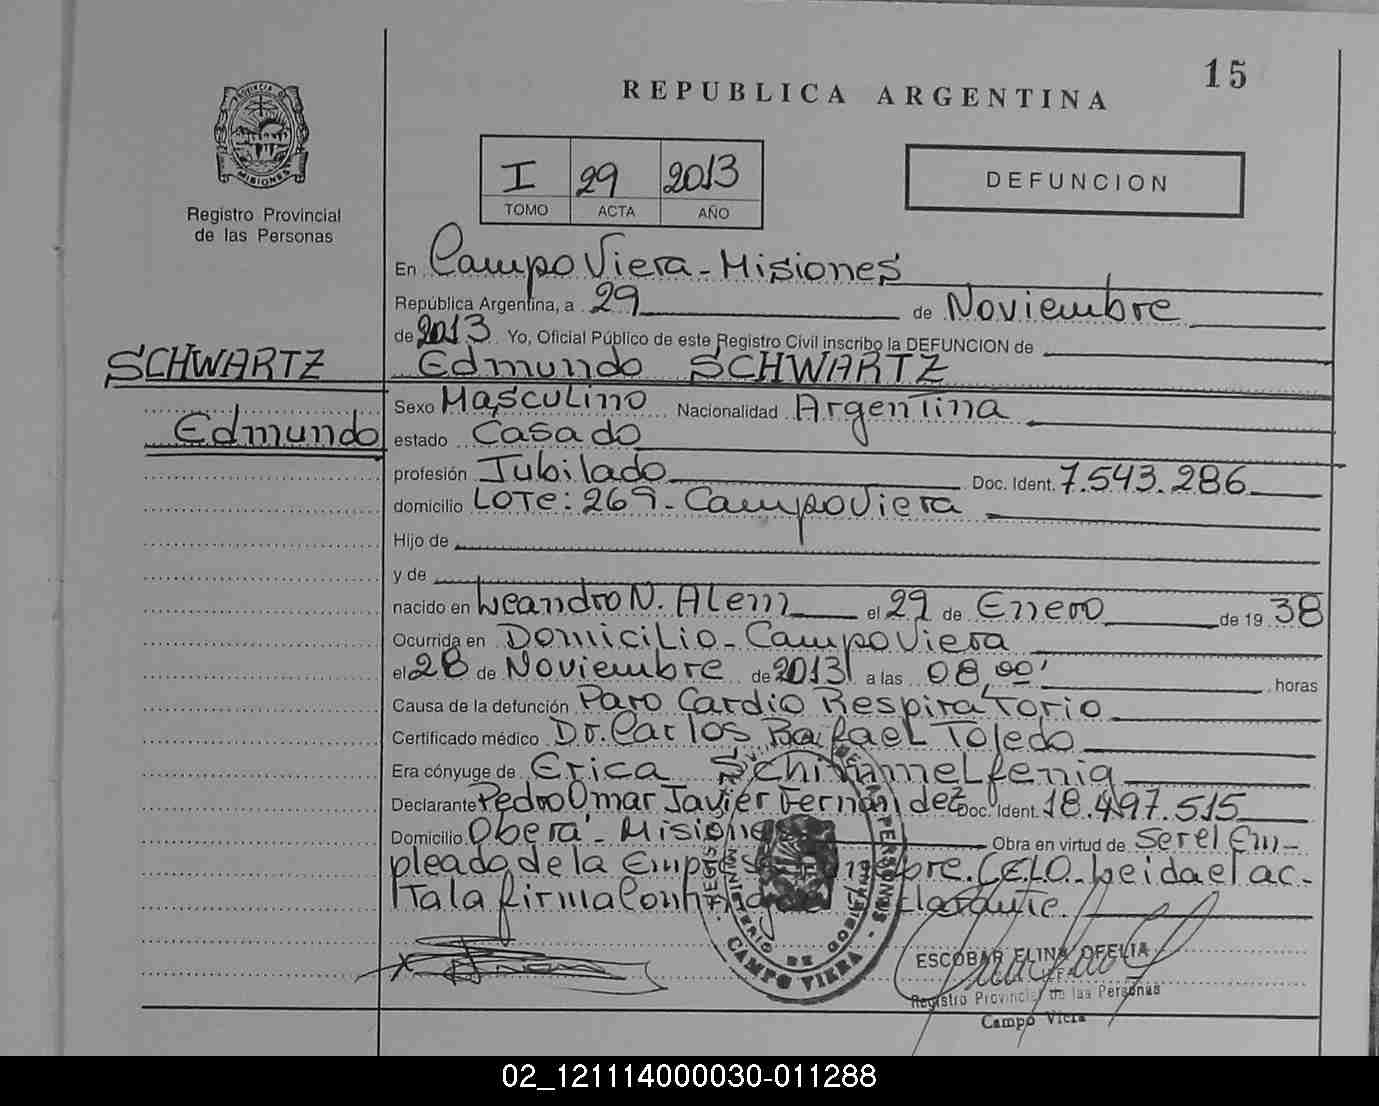 15
REPUBLICA ARGENTINA
PROVINCIA DE
MISIONES
Registro Provincial
de las Personas
I 29 2013
TOMO ACTA AÑO
DEFUNCION
En Campo Viera - Misiones
República Argentina, a 29 de Noviembre
de 2013 Yo, Oficial Público de este Registro Civil inscribo la DEFUNCION de
SCHWARTZ Edmundo SCHWARTZ
Sexo Masculino Nacionalidad Argentina
Edmundo estado Casado
profesión Jubilado Doc. Ident. 7.543.286
domicilio LOTE: 269 - Campo Viera
Hijo de
y de
nacido en Leandro N. Alem el 29 de Enero de 19 38
Ocurrida en Domicilio - Campo Viera
el 28 de Noviembre de 2013 a las 08,00' horas
Causa de la defunción Paro Cardio Respiratorio
Certificado médico Dr. Carlos Rafael Toledo
Era cónyuge de Erica Schimmelfenig
Declarante Pedro Omar Javier Fernández Doc. Ident. 18.497.515
Domicilio Oberá - Misiones Obra en virtud de ser el Em-
pleado de la Empresa Fúnebre. CELO. Leida el ac-
ta la firma Conmigo el declarante.
MINISTERIO DE GOBIERNO
CAMPO VIERA
ESCOBAR ELINA OFELIA
Registro Provincial de las Personas
Campo Viera
02_121114000030-011288